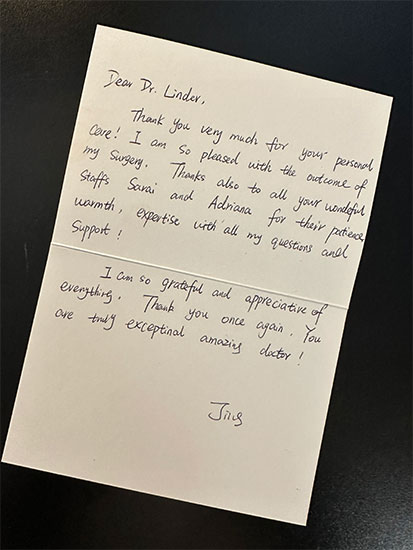 Dear Dr. Linder,
Thank you very much for your personal
care! I am so pleased with the outcome of
my surgery. Thanks also to all your wondeful
staffs Sarai and Adriana for their patience,
warmth, expertise with all my questions and
support!
I am so grateful and appreciative of
everything. Thank you once again. You
are truly exceptinal amazing doctor!